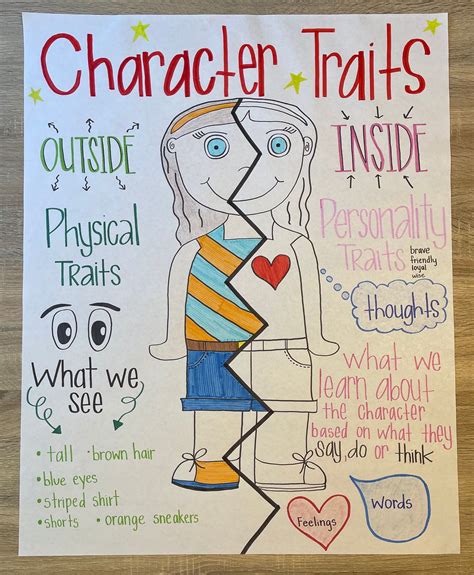 Character Traits
OUTSIDE
Physical
Traits
What we
see
• tall • brown hair
• blue eyes
• striped shirt
• shorts • orange sneakers
INSIDE
Personality
Traits
brave
friendly
loyal
wise
thoughts
What we
learn about
the character
based on what they
say, do or think
Feelings
Words